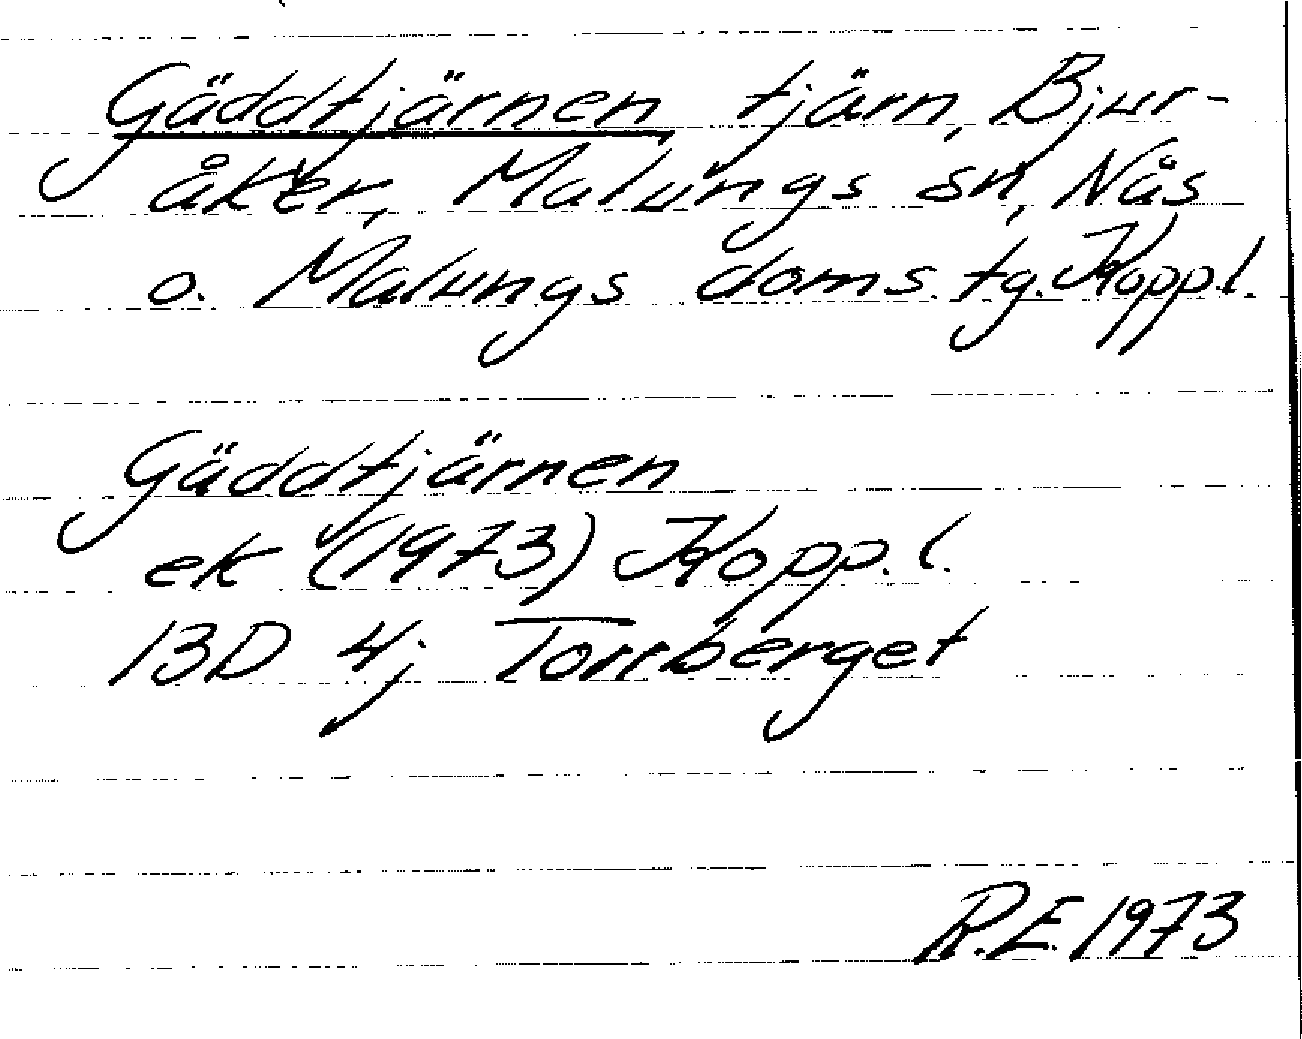 Gäddtjärnen tjärn, Bjur-
åker, Malungs sn, Nås
o. Malungs doms. tg. Kopp.l.
Gäddtjärnen
ek (1973) Kopp.l.
13D 4j Torrberget
R.E. 1973